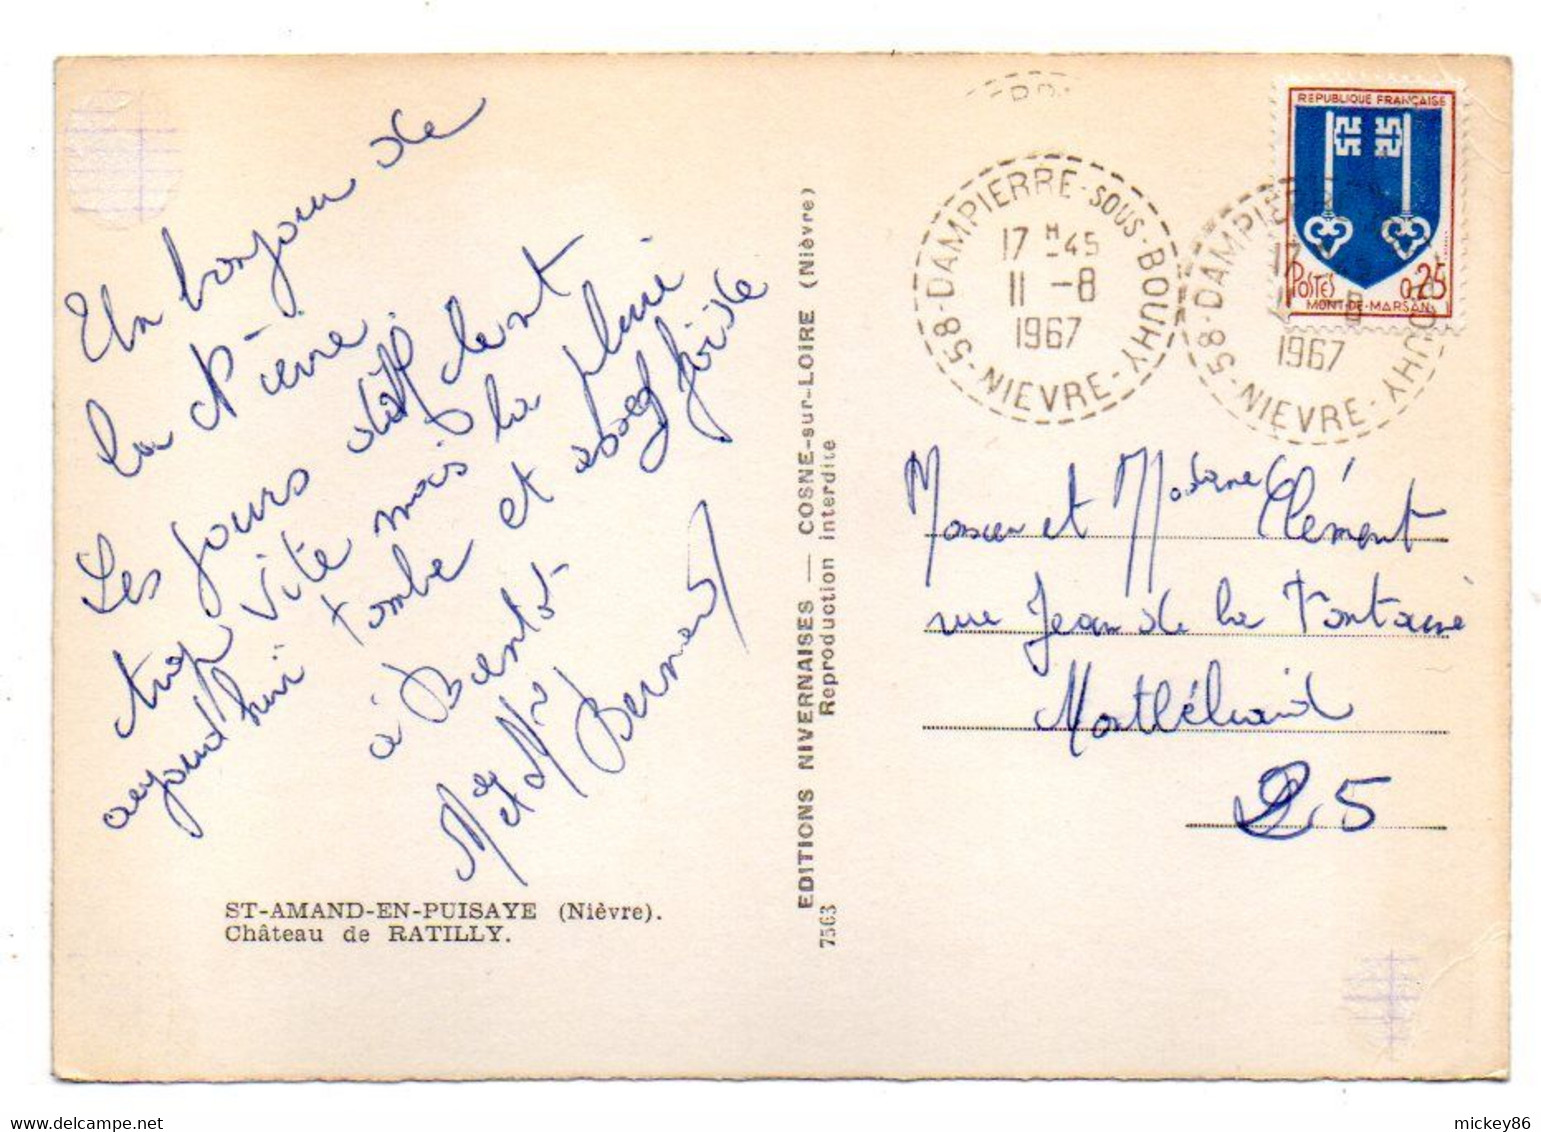 Un bonjour de
la Nièvre.
Les jours défilent
trop vite mais la pluie
aujourd'hui tombe et assez froide
à Bientôt
Mr et Me
Bernard
ST-AMAND-EN-PUISAYE (Nièvre).
Château de RATILLY.
EDITIONS NIVERNAISES — COSNE-sur-LOIRE (Nièvre)
Reproduction interdite
7563
58-DAMPIERRE-SOUS-BOUHY
17H-45
11-8
1967
NIEVRE
58-DAMPIE
17
1967
NIEVRE
UHY
REPUBLIQUE FRANÇAISE
POSTES 0,25
MONT-DE-MARSAN
Monsieur et Madame Clément
rue Jean de la Fontaine
Montbéliard
25
mickey86